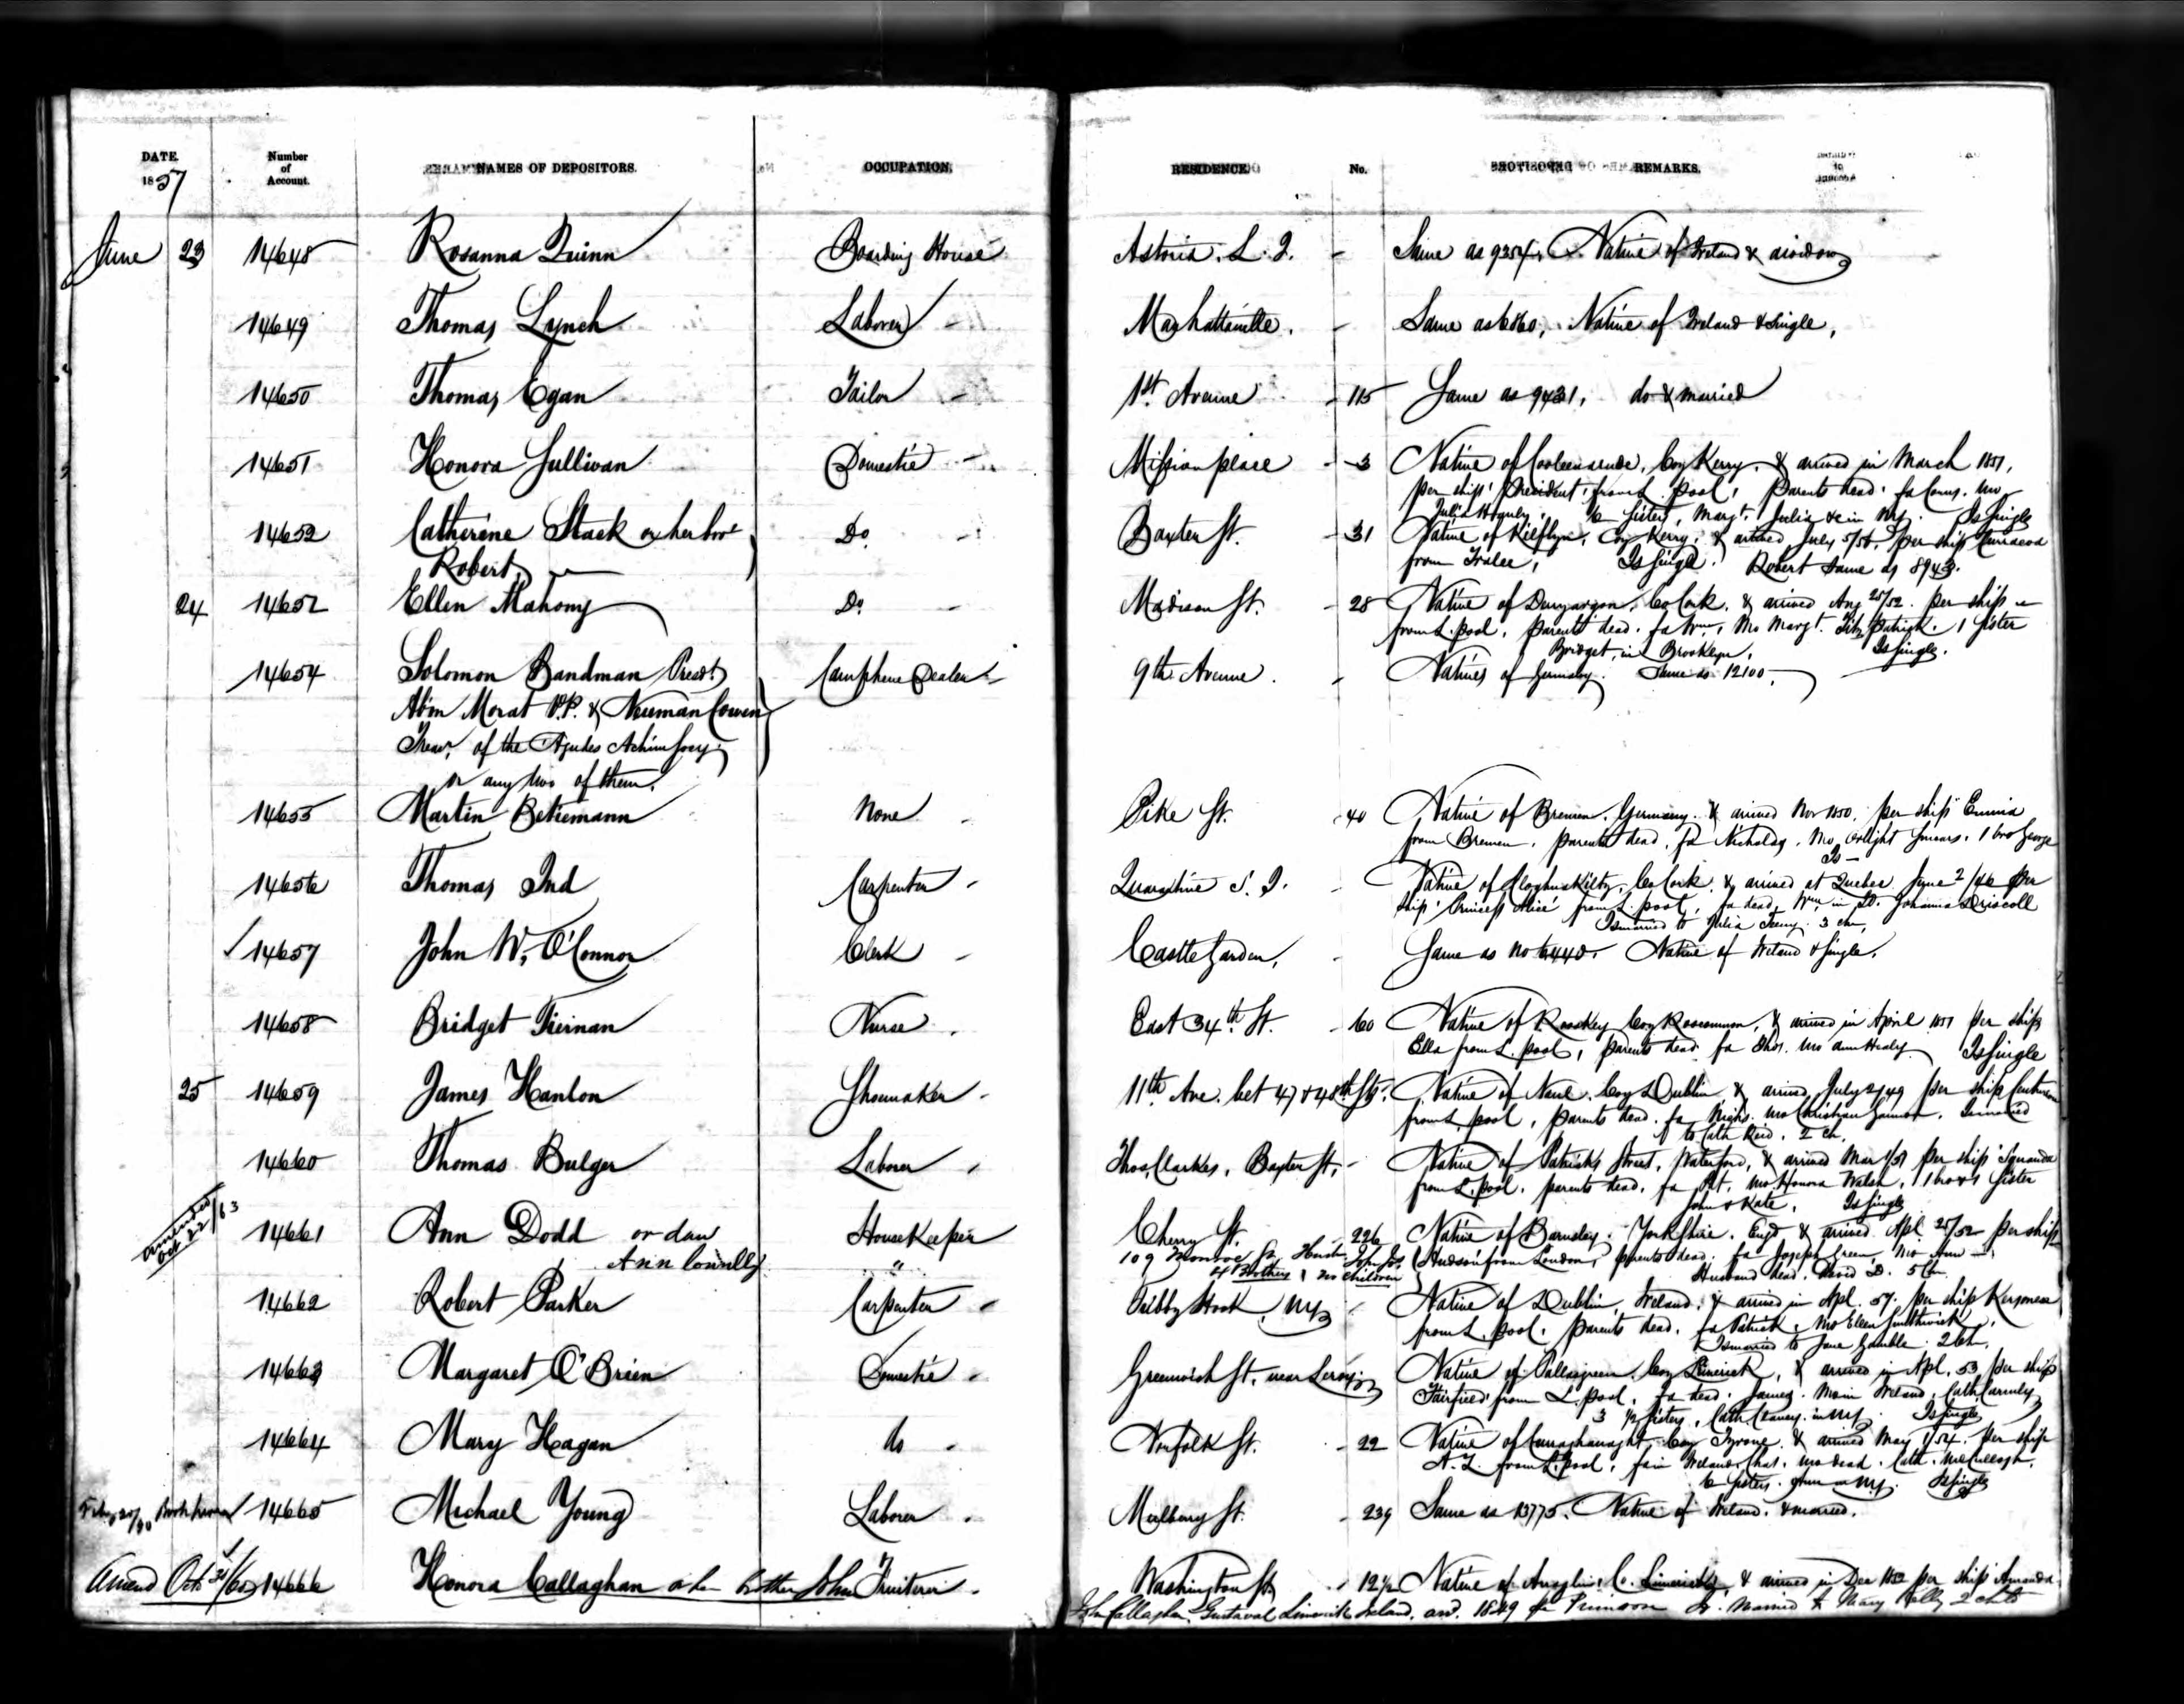 DATE. 1857
Number of Account.
NAMES OF DEPOSITORS.
OCCUPATION.
RESIDENCE.
No.
REMARKS.
June 23 14648 Rosanna Quinn Boarding House Astoria. L. I. - Same as 9354. Native of Ireland & a widow
14649 Thomas Lynch Laborer - Manhattanville. - Same as 6860, Native of Ireland & Single,
14650 Thomas Egan Tailor - 1st Avenue - 115 Same as 9431, do & married
14651 Honora Sullivan Domestic - Mission place - 3 Native of Coy Kerry, & arrived in March 1851,
per ship President, from L. pool, Parents dead, fa Corns. mo
Julia 6 Sisters, Margt. Julia in NY. Is Single
14652 Catherine Stack or her bro Do - Baxter St. - 31 Native of Kilflyn, Coy Kerry, & arrived July 5/56, per ship
Robert from Tralee, Is Single. Robert same as 8943.
24 14652 Ellen Mahony Do - Madison St. - 28 Native of Co Cork, & arrived Aug 25/52. per ship -
from L. pool, parents dead. fa Wm, Mo Margt. Fitzpatrick. 1 Sister
Bridget, in Brooklyn, Is Single.
14654 Solomon Bandman Presdt Camphene Dealer - 9th Avenue. - Natives of Germany. Same as 12100.
Abm Morat V.P. & Neuman Cowen
Treasr. of the Agudes Achim Socy.
or any two of them.
14655 Martin Betiemann None - Pike St. - 40 Native of Bremen, Germany, & arrived Nov 1850, per ship Emma
from Bremen, parents dead, fa Nicholas, Mo 1 bro George
Is -
14656 Thomas Ind Carpenter - Quarantine S. I. - Native of Co Cork, & arrived at Quebec June 2/46 per
ship 'Princess Alice' from L. pool, fa dead, Wm, Johanna Driscoll
Is married to Julia 3 chn,
14657 John W. O'Connor Clerk - Castle Garden, - Same as No 6440. Native of Ireland & Single.
14658 Bridget Tiernan Nurse. East 34th St. - 60 Native of Rooskey Coy Roscommon, & arrived in April 1851 per ship
Ella from L. pool, parents dead fa Thos. mo Ann Healy. Is Single
25 14659 James Hanlon Shoemaker - 11th Ave. bet 47 & 48th Sts. Native of Naul, Coy Dublin, & arrived July 2/49 per ship
from L. pool, parents dead. fa Nichs. mo Christian Is married
to Cath Reid. 2 ch.
14660 Thomas Bulger Laborer - Thos. Clarkes, Baxter St. - Native of Patricks Street, Waterford, & arrived Mar 1/51 per ship
from L. pool. parents dead, fa Pat, mo Honora Walsh, 1 bro & 1 Sister
John & Kate, Is Single
amended Oct 22/63 14661 Ann Dodd or dau Housekeeper Cherry St. - 226 Native of Barnsley. Yorkshire, Engd & arrived Apl 25/52 per ship
Ann Connelly " 109 Monroe St. Husb. John Jos. Hudson from London, parents dead. fa Joseph Green, mo Ann -
4 Brothers & no children Husband dead. David D. 5 Chn.
14662 Robert Parker Carpenter - Tubby Hook, NY - Native of Dublin, Ireland, & arrived in Apl. 57. per ship
from L. pool. parents dead, fa Patrick, Mo Ellen Smithwick,
Is married to Jane Gamble. 2 Ch.
14663 Margaret O'Brien Domestic - Greenwich St. near Leroy Native of Pallasgreen, Coy Limerick, & arrived in Apl. 53 per ship
Fairfield from L. pool, fa dead. James. Mo in Ireland, Cath
3 1/2 Sisters, Cath in NY. Is Single
14664 Mary Hagan do - Norfolk St. - 22 Native of Coy Tyrone, & arrived May 1/54. per ship
A. Z. from L. pool, fa in Ireland, Chas. mo dead. Cath. McCullogh.
6 Sisters. Ann in NY. Is Single
14665 Michael Young Laborer - Mulberry St. - 239 Same as 13775. Native of Ireland, & married.
Amend Oct 14666 Honora Callaghan or her brother John Fruiterer - Washington St - 12 1/2 Native of Co. Limerick, & arrived in Dec 1850 per ship Amanda
John Callaghan, Limerick Ireland, arr. 1849 Married to Mary Kelly 2 chn